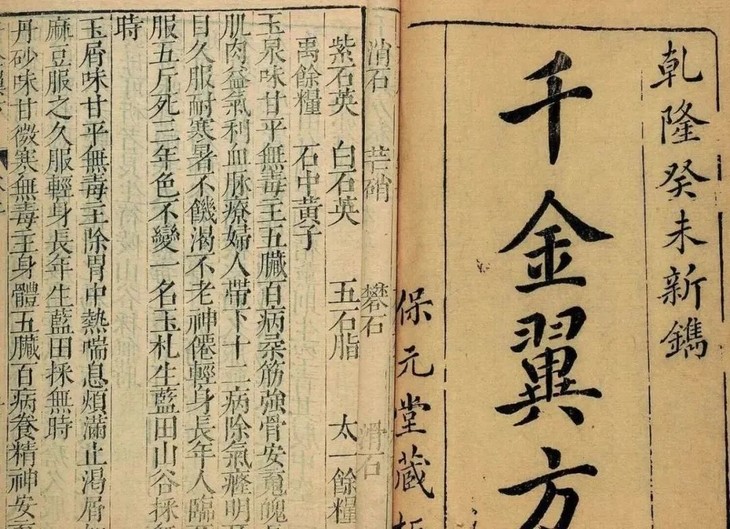 乾隆癸未新鐫
千金翼方
保元堂藏
消石 芒硝 礬石 滑石
紫石英 白石英 五石脂 太一餘糧
禹餘糧 石中黃子
玉泉味甘平無毒主五臟百病柔筋強骨安䰟魄
肌肉益氣利血脉療婦人帶下十二病除氣癃明
目久服耐寒暑不饑渴不老神僊輕身長年人臨
服五斤死三年色不變一名玉札生藍田山谷採
時
玉屑味甘平無毒主除胃中熱喘息煩滿止渴屑
麻豆服之久服輕身長年生藍田採無時
丹砂味甘微寒無毒主身體五臟百病養精神安